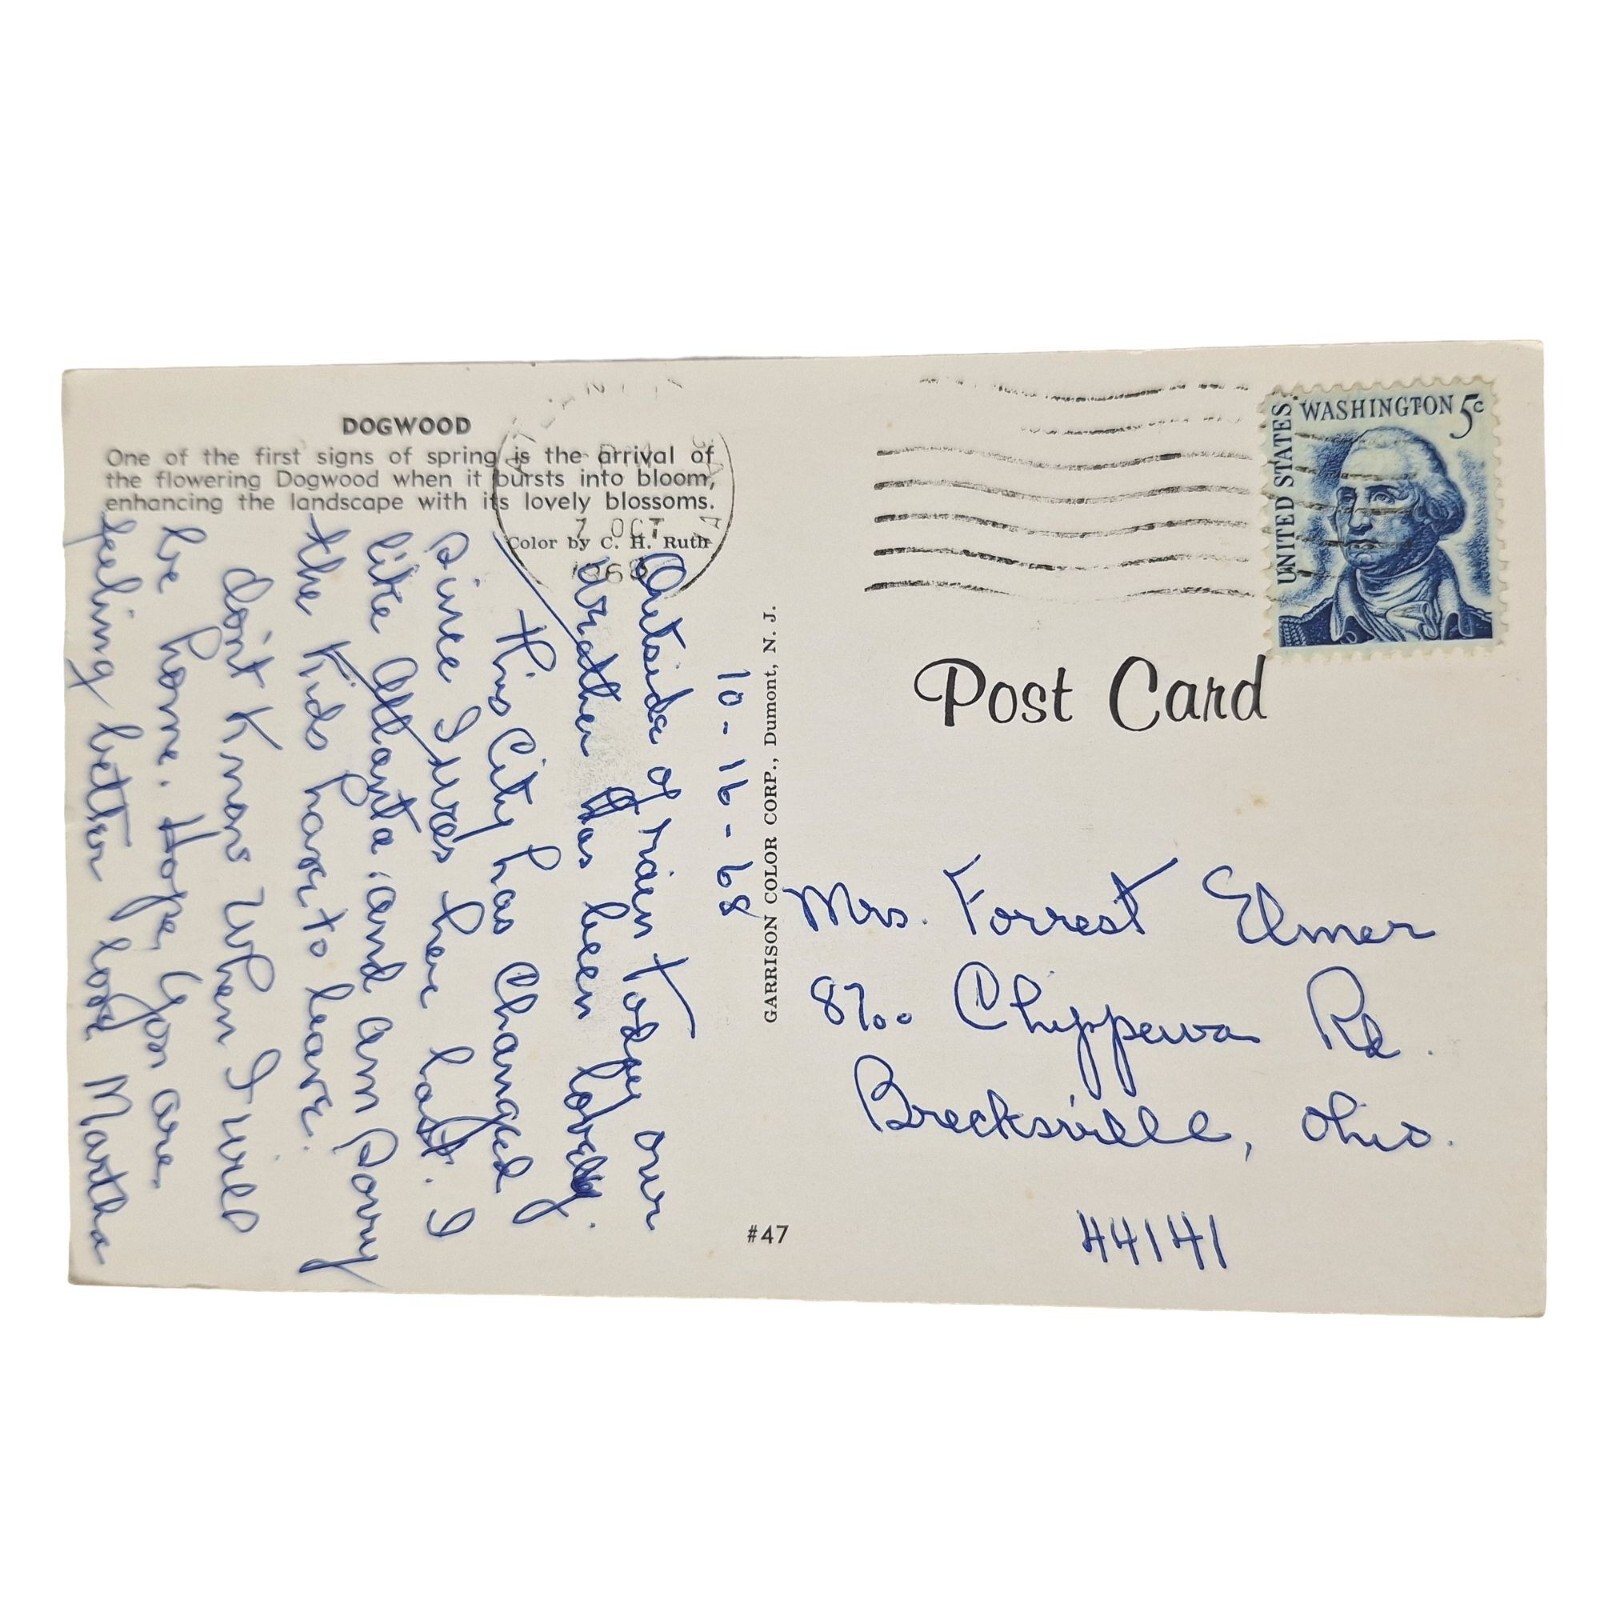 DOGWOOD
One of the first signs of spring is the arrival of
the flowering Dogwood when it bursts into bloom,
enhancing the landscape with its lovely blossoms.
Color by C. H. Ruth
7 OCT
1968
10-16-68
Outside of rain today our
weather has been lovely.
this City has Changed
since I was here last. I
like Atlanta, and am sorry
the Kids have to leave.
don't Know When I will
be home. Hope you are
feeling better love Martha
GARRISON COLOR CORP., Dumont, N. J.
#47
UNITED STATES
WASHINGTON 5c
Post Card
Mrs. Forrest Elmer
8700 Chippewa Rd.
Brecksville, Ohio.
44141